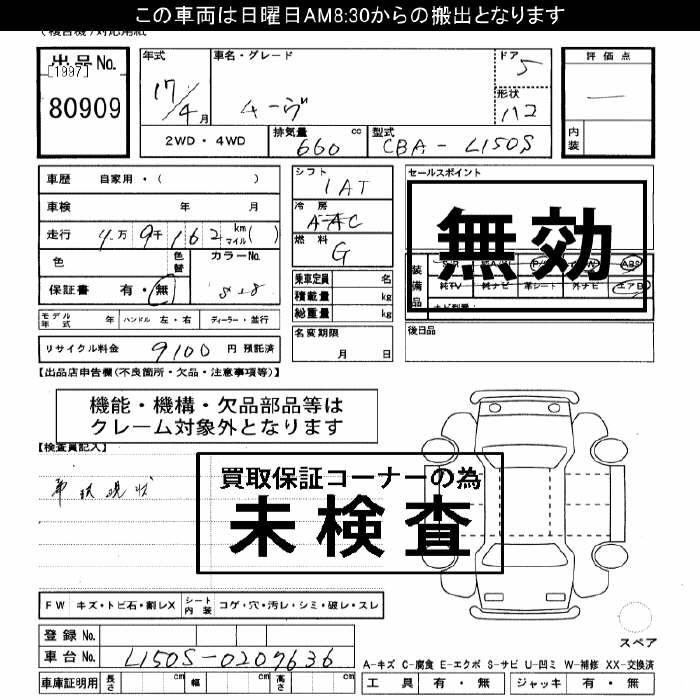 この車両は日曜日AM8:30からの搬出となります
出品No.
[1997]
80909
年式
17/4月
車名・グレード
ムーヴ
ドア
5
形状
ハコ
評価点
—
内装
2WD・4WD
排気量 660 cc
型式 CBA-L150S
車歴 自家用・( )
車検 年 月
走行 4万9千162 km マイル( )
色
色替
カラーNo.
S28
保証書 有・無
モデル年式 年 ハンドル 左・右 ディーラー・並行
リサイクル料金 9100 円 預託済
シフト
1AT
冷房
AAC
燃料
G
乗車定員 名
積載量 kg
総重量 kg
名変期限
月 日
セールスポイント
無効
装備品
ABS
純TV 純ナビ 革シート 外ナビ エアB
後日品
【出品店申告欄(不良箇所・欠品・注意事項等)】
機能・機構・欠品部品等は
クレーム対象外となります
【検査員記入】
車状現状
買取保証コーナーの為
未検査
FW キズ・トビ石・割レX シート内装 コゲ・穴・汚レ・シミ・破レ・スレ
登録No.
車台No. L150S-0207636
車庫証明用 長さ cm 幅 cm 高さ cm
スペア
A-キズ C-腐食 E-エクボ S-サビ U-凹ミ W-補修 XX-交換済
工具 有・無 ジャッキ 有・無